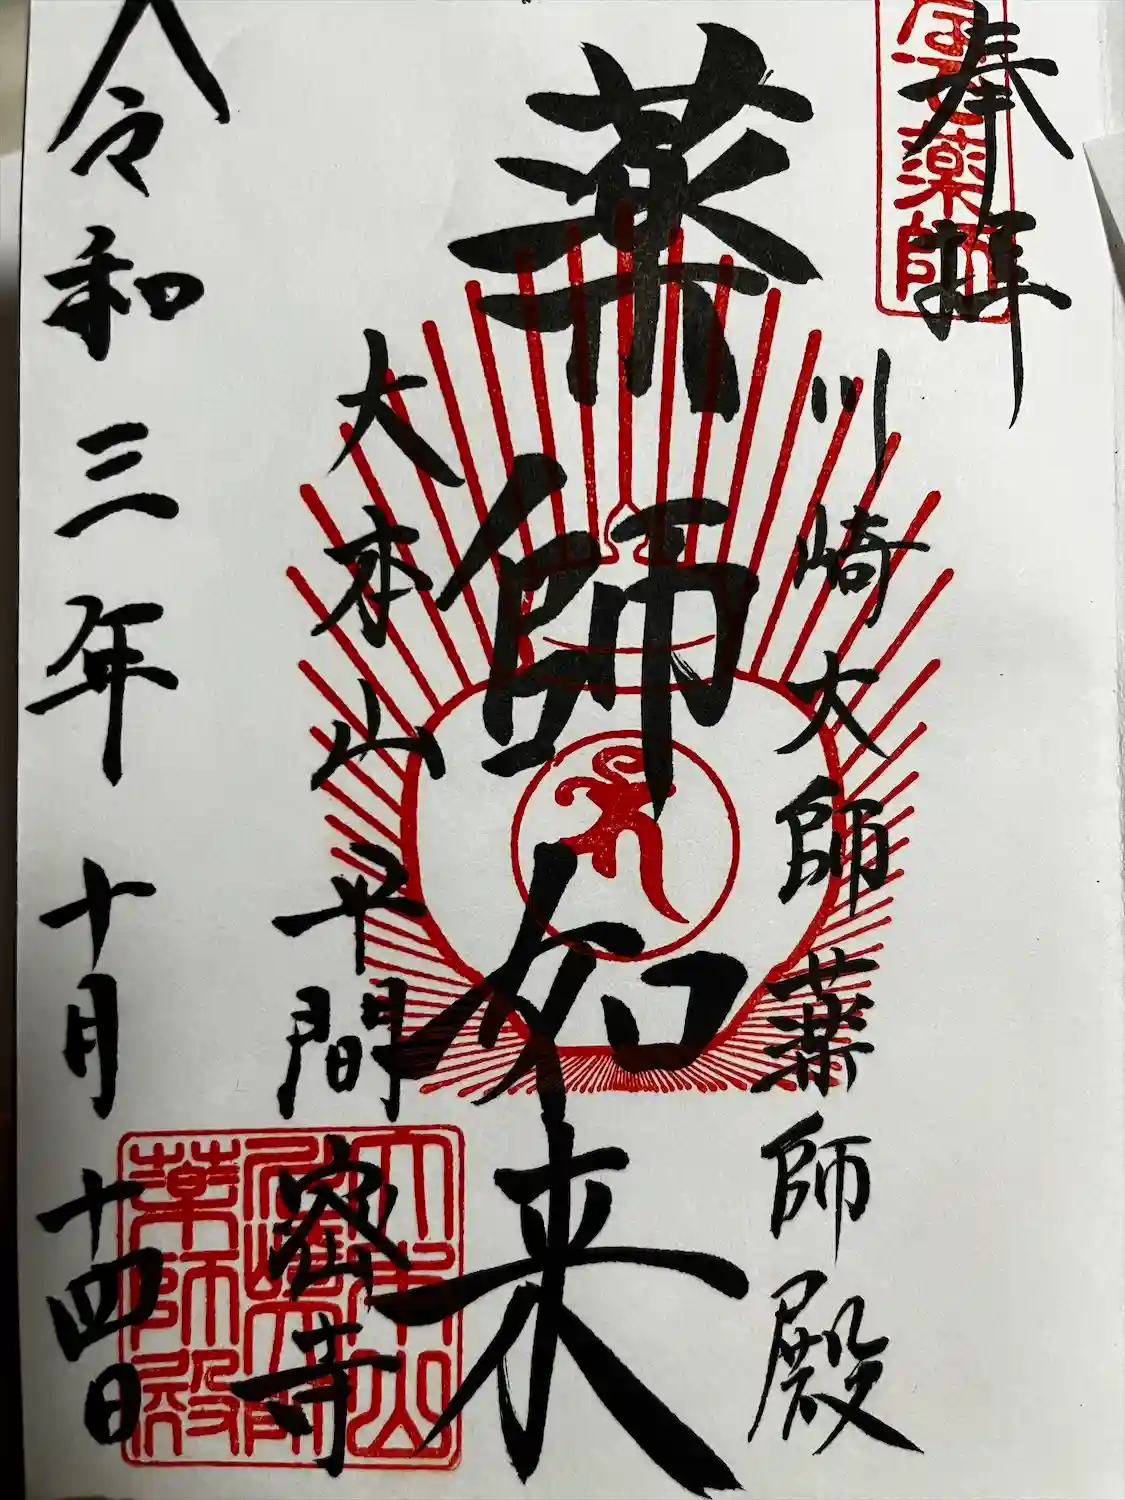 奉拝
川崎大師薬師殿
薬師如来
大本山平間密寺
令和三年十月十四日
薬師
大本山
川崎大師
薬師殿